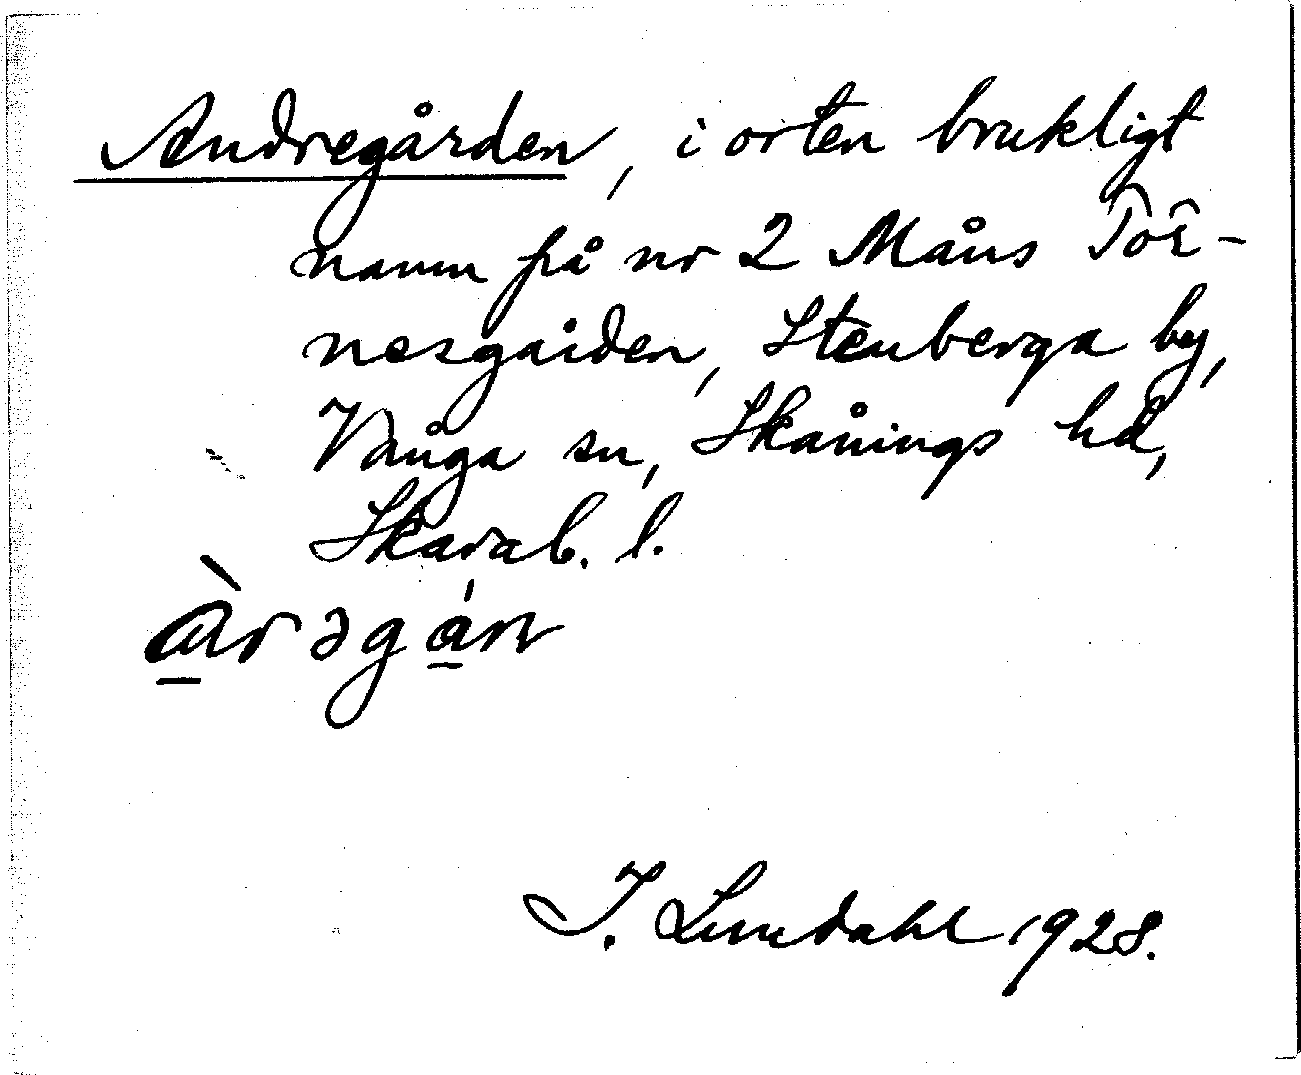 Andregården, i orten brukligt
namn på nr 2 Måns Tor-
nesgården, Stenberga by,
Vånga sn, Skånings hd,
Skarab. l.
àrəgán
I. Lundahl 1928.